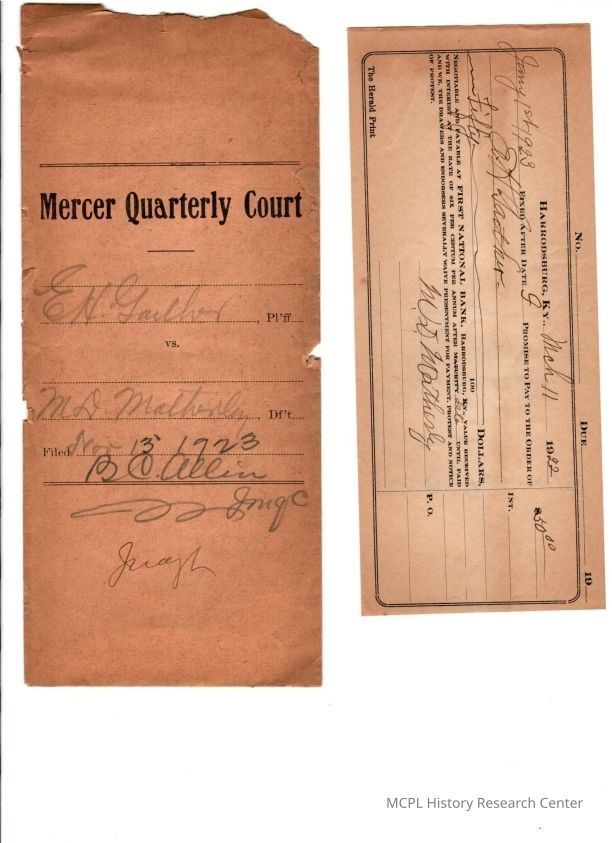 Mercer Quarterly Court
E.H. Gaither, Pl'ff.
vs.
M.D. Matherly, Df't.
Filed Nov 15 1923
B.C. Allin
JMQC
No. Due 19
Harrodsburg, Ky., Mch 11 1922 $50.00
Jany 1st 1923 Fixed After Date I Promise to Pay to the Order of
E.H. Gaither Int.
Fifty 100 Dollars,
Negotiable and Payable at First National Bank, Harrodsburg, Ky., Value Received
with Interest at the Rate of Six Per Centum Per Annum After Maturity date Until Paid
and We, the Drawers and Endorsers Severally Waive Presentment for Payment, Protest and Notice
of Protest.
M D Matherly P. O.
The Herald Print
MCPL History Research Center